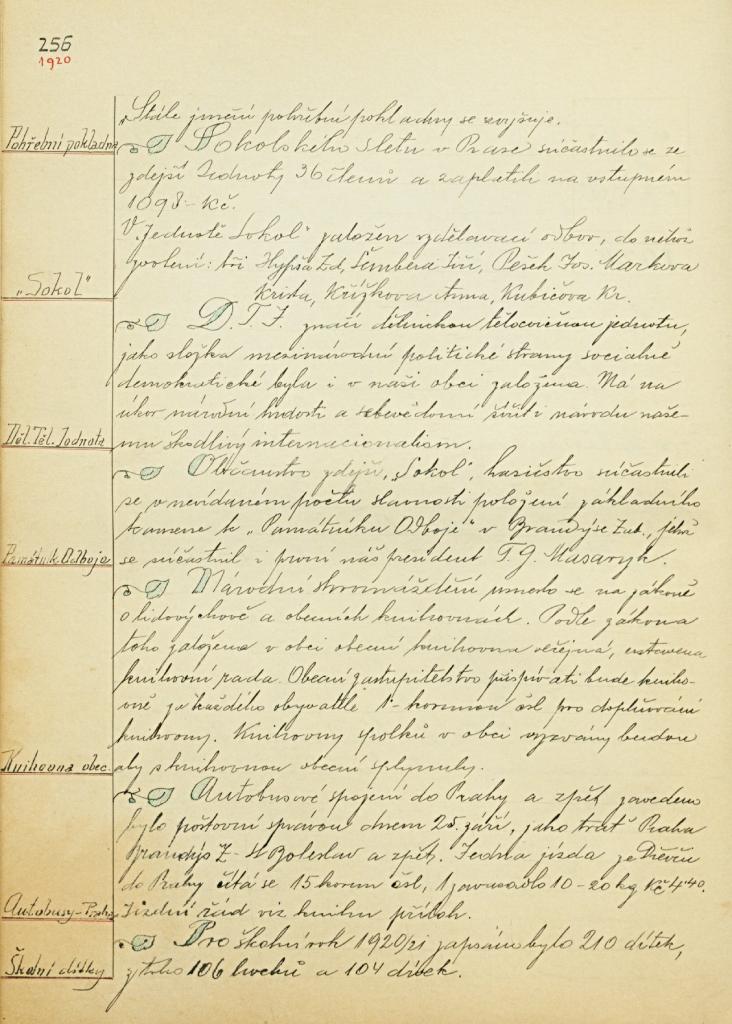 256
1920
Stálé jmění pohřební pokladny se zvyšuje.
Pohřební pokladna
Sokolského sletu v Praze súčastnilo se ze
zdejší Jednoty 36 členů a zaplatili na vstupném
1098·- Kč.
V Jednotě „Sokol" založen vzdělavací odbor, do něhož
zvoleni: bři Hypša Ed, Šembera Jiří, Pešek Jos. Markova
„Sokol"
Krista, Křížkova Anna, Kubičova Kr.
D.T.J. značí dělnickou tělocvičnou jednotu,
jako složka mezinárodní politické strany socialně
demokratické byla i v naší obci založena. Má na
úkor národní hrdosti a sebevědomí šířiti národu naše-
Děl. Těl. Jednota
mu škodlivý internacionalism.
Občanstvo zdejší, „Sokol", hasičstvo súčastnili
se v nevídaném počtu slavnosti položení základního
kamene k „Památníku Odboje" v Brandýse n.L., jehož
Památník Odboje
se súčastnil i první náš president T. G. Masaryk.
Národní shromáždění usneslo se na zákoně
o lidovýchově a obecních knihovnách. Podle zákona
toho založena v obci obecní knihovna veřejná, ustavena
knihovní rada. Obecní zastupitelstvo přispívati bude knihov-
ně za každého obyvatele 1·- korunou čsl pro doplňování
knihovny. Knihovny spolků v obci vyzvány budou
Knihovna obec.
aby s knihovnou obecní splynuly.
Autobusové spojení do Prahy a zpět zavedeno
bylo poštovní správou dnem 25. září, jako trať Praha
Brandýs L - St Boleslav a zpět. Jedna jízda ze Dřevčic
do Prahy čítá se 15 korun čsl, 1 zavazadlo 10-20 kg Kč 4·40.
Autobusy - Praha
Jízdní řád viz knihu příloh.
Pro školní rok 1920/21 zapsáno bylo 210 dítek,
Školní dítky
z toho 106 hochů a 104 dívek.